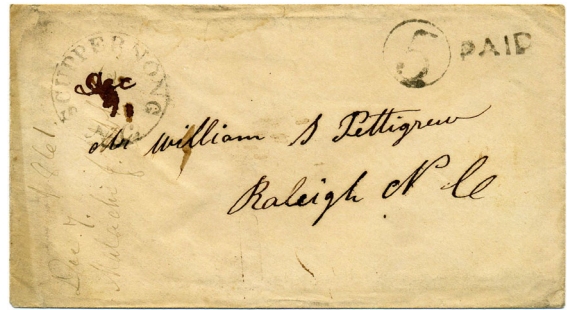 SCUPPERNONG
Dec
N.C.
5
PAID
Mr William S Pettigrew
Raleigh N C
Dec 7.
Malachi J